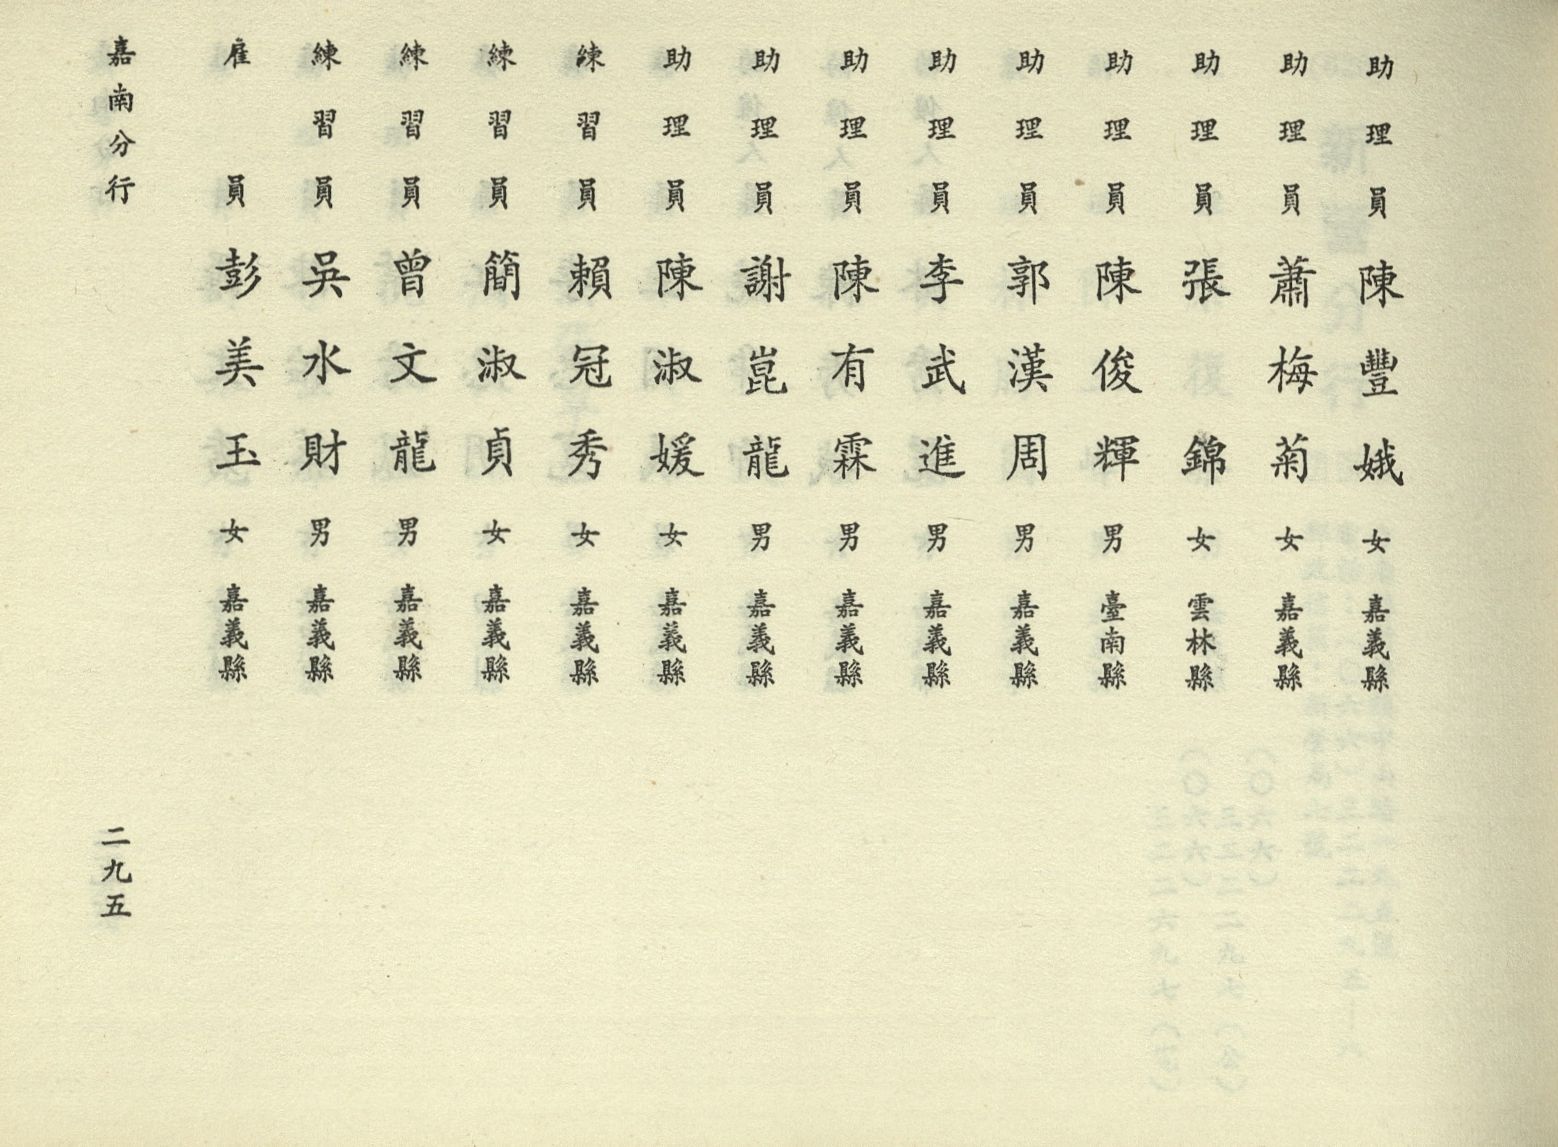 助理員 陳豐娥 女 嘉義縣
助理員 蕭梅菊 女 嘉義縣
助理員 張錦 女 雲林縣
助理員 陳俊輝 男 臺南縣
助理員 郭漢周 男 嘉義縣
助理員 李武進 男 嘉義縣
助理員 陳有霖 男 嘉義縣
助理員 謝崑龍 男 嘉義縣
助理員 陳淑媛 女 嘉義縣
練習員 賴冠秀 女 嘉義縣
練習員 簡淑貞 女 嘉義縣
練習員 曾文龍 男 嘉義縣
練習員 吳水財 男 嘉義縣
雇員 彭美玉 女 嘉義縣
嘉南分行
二九五